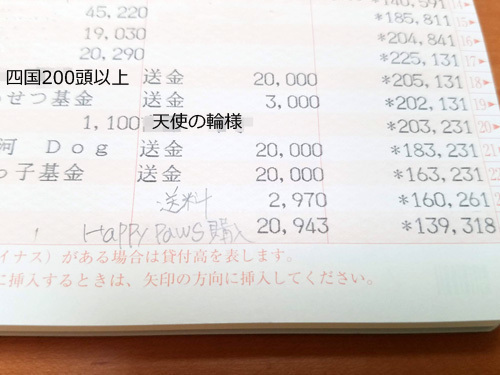 45,220 *185,811 15
19,030 *204,841 16
20,290 *225,131 17
四国200頭以上 送金 20,000 *205,131 18
せつ基金 送金 3,000 *202,131 19
1,100 天使の輪様 *203,231 20
河 Dog 送金 20,000 *183,231 21
っ子基金 送金 20,000 *163,231 22
送料 2,970 *160,261 23
Happy paws購入 20,943 *139,318 24
イナス)がある場合は貸付高を表します。
に挿入するときは、矢印の方向に挿入してください。